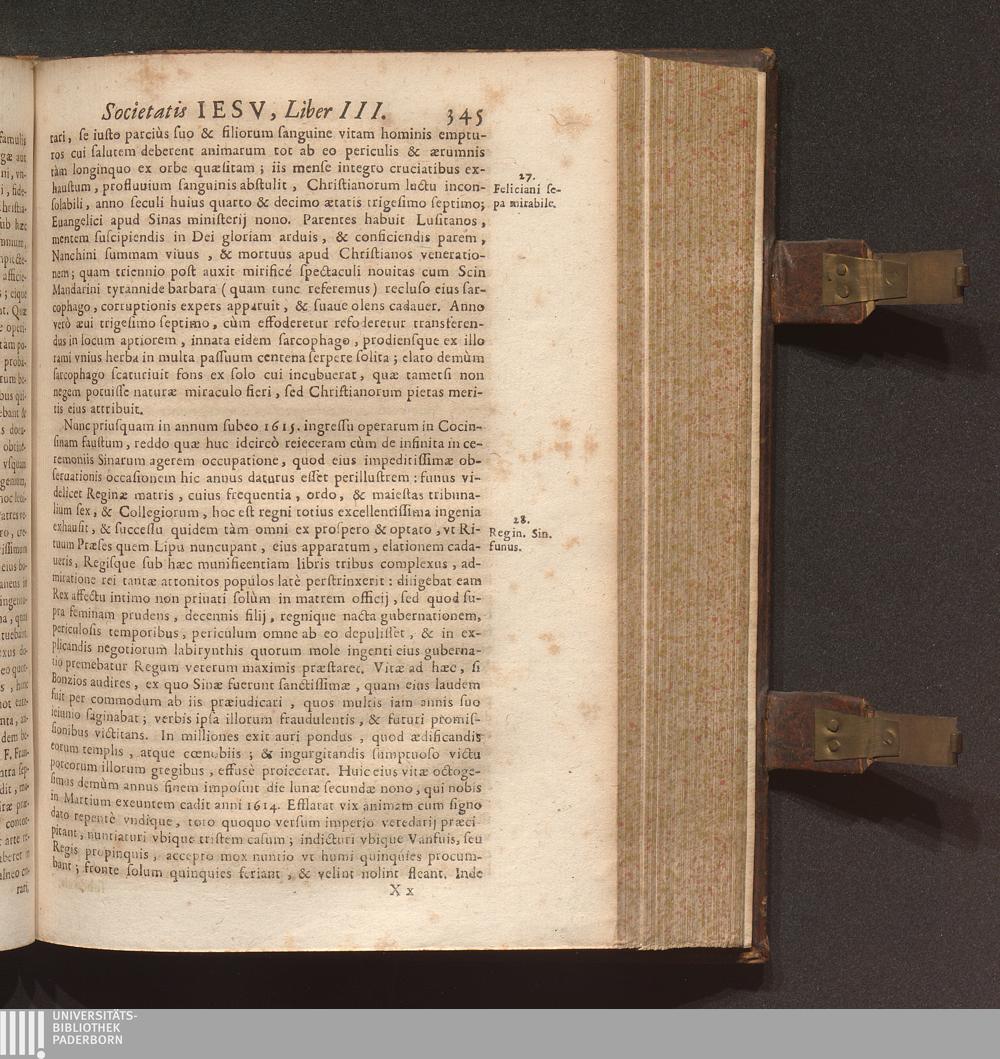 Societatis IESV, Liber III. 345
tari, se iusto parciùs suo & filiorum sanguine vitam hominis emptu-
ros cui salutem deberent animarum tot ab eo periculis & ærumnis
tàm longinquo ex orbe quæsitam; iis mense integro cruciatibus ex-
haustum, profluuium sanguinis abstulit, Christianorum luctu incon-
solabili, anno seculi huius quarto & decimo ætatis trigesimo septimo;
Euangelici apud Sinas ministerij nono. Parentes habuit Lusitanos,
mentem suscipiendis in Dei gloriam arduis, & conficiendis parem,
Nanchini summam viuus, & mortuus apud Christianos veneratio-
nem; quam triennio post auxit mirificé spectaculi nouitas cum Scin
Mandarini tyrannide barbara (quam tunc referemus) recluso eius sar-
cophago, corruptionis expers apparuit, & suaue olens cadauer. Anno
verò æui trigesimo septimo, cùm effoderetur refoderetur transferen-
dus in locum aptiorem, innata eidem sarcophago, prodiensque ex illo
rami vnius herba in multa passuum centena serpere solita; elato demùm
sarcophago scaturiuit fons ex solo cui incubuerat, quæ tametsi non
negem potuisse naturæ miraculo fieri, sed Christianorum pietas meri-
tis eius attribuit.
27.
Feliciani se-
pa mirabile.
Nunc priusquam in annum subeo 1615. ingressu operarum in Cocin-
sinam faustum, reddo quæ huc idcircò reieceram cùm de infinita in ce-
remoniis Sinarum agerem occupatione, quod eius impeditissimæ ob-
seruationis occasionem hic annus daturus esset perillustrem: funus vi-
delicet Reginæ matris, cuius frequentia, ordo, & maiestas tribuna-
lium sex, & Collegiorum, hoc est regni totius excellentissima ingenia
exhausit, & successu quidem tàm omni ex prospero & optato, vt Ri-
tuum Præses quem Lipu nuncupant, eius apparatum, elationem cada-
ueris, Regisque sub hæc munificentiam libris tribus complexus, ad-
miratione rei tantæ attonitos populos latè perstrinxerit: diligebat eam
Rex affectu intimo non priuati solùm in matrem officij, sed quod su-
pra feminam prudens, decennis filij, regnique nacta gubernationem,
periculosis temporibus, periculum omne ab eo depulisset, & in ex-
plicandis negotiorum labirynthis quorum mole ingenti eius guberna-
tio premebatur Regum veterum maximis præstaret. Vitæ ad hæc, si
Bonzios audires, ex quo Sinæ fuerunt sanctissimæ, quam eius laudem
fuit per commodum ab iis præiudicari, quos multis iam annis suo
ieiunio saginabat; verbis ipsa illorum fraudulentis, & futuri promis-
sionibus victitans. In milliones exit auri pondus, quod ædificandis
eorum templis, atque cœnobiis; & ingurgitandis sumptuoso victu
porcorum illorum gregibus, effusè proiecerat. Huic eius vitæ octoge-
simus demùm annus finem imposuit die lunæ secundæ nono, qui nobis
in Martium exeuntem cadit anni 1614. Efflarat vix animam cum signo
dato repentè vndique, toto quoquo versum imperio veredarij præci
pitant, nuntiaturi vbique tristem casum; indicturi vbique Vanfuis, seu
Regis propinquis, accepto mox nuntio vt humi quinquies procum-
bant; fronte solum quinquies feriant, & velint nolint fleant. Inde
28.
Regin. Sin.
funus.
X x
UNIVERSITÄTS-
BIBLIOTHEK
PADERBORN